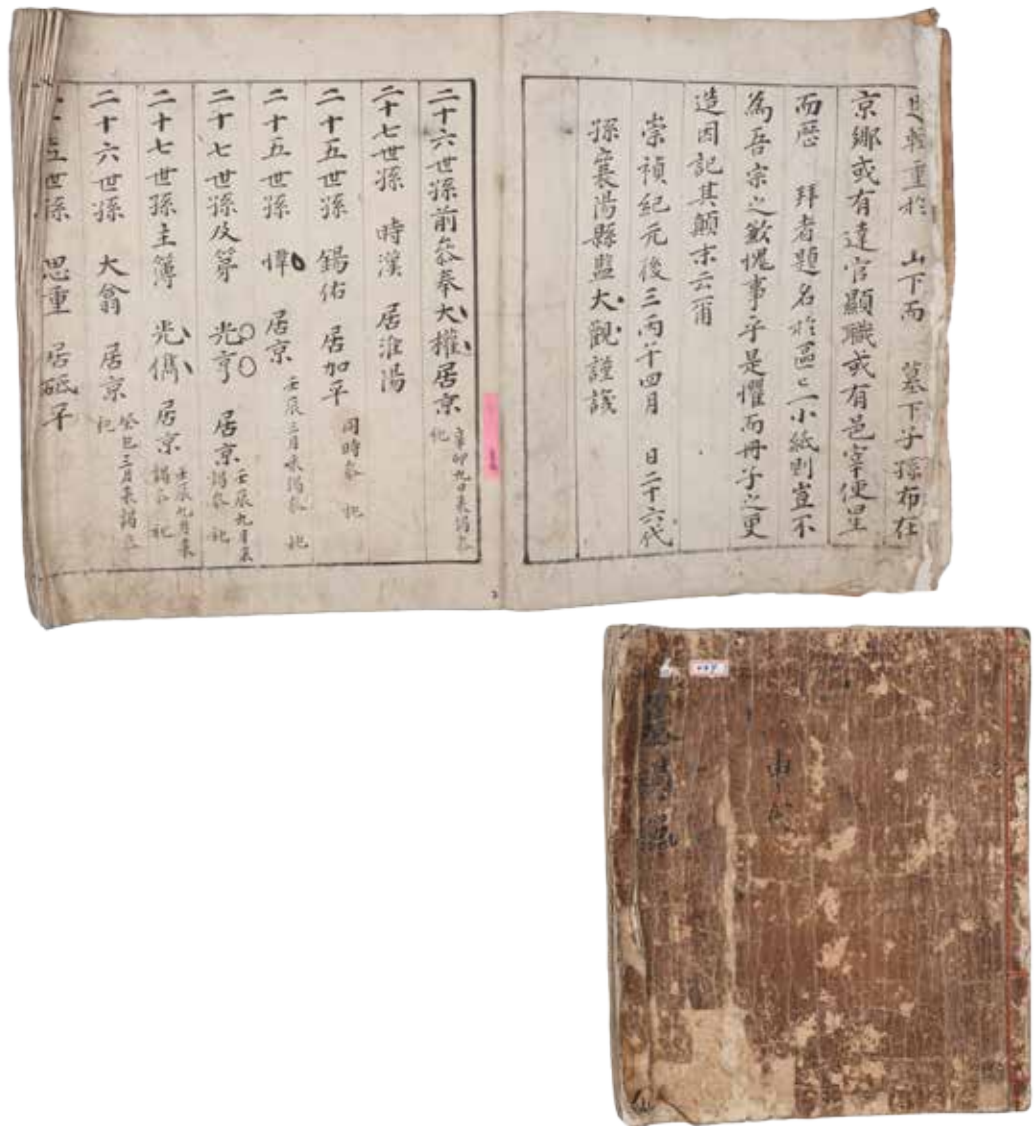 輕重於 山下而 墓下子孫布在
京鄉或有達官顯職或有邑宰使星
而歷 拜者題名於區〻小紙則豈不
為吾宗之歉愧事乎是懼而冊子之更
造因記其顛末云爾
崇禎紀元後三丙午四月 日二十六代
孫襄陽縣監大觀謹識
二十六世孫前叅奉大權居京 辛卯九月來謁叅
祀
二十七世孫 時漢 居淮陽
二十五世孫 錫佑 居加平 同時叅 祀
二十五世孫 愇 居京 壬辰三月來謁叅 祀
二十七世孫及第 光亨 居京 壬辰九月來
謁叅 祀
二十七世孫主簿 光儁 居京 壬辰九月來
謁叅 祀
二十六世孫 大翁 居京 癸巳三月來謁叅
祀
世孫 思重 居砥平